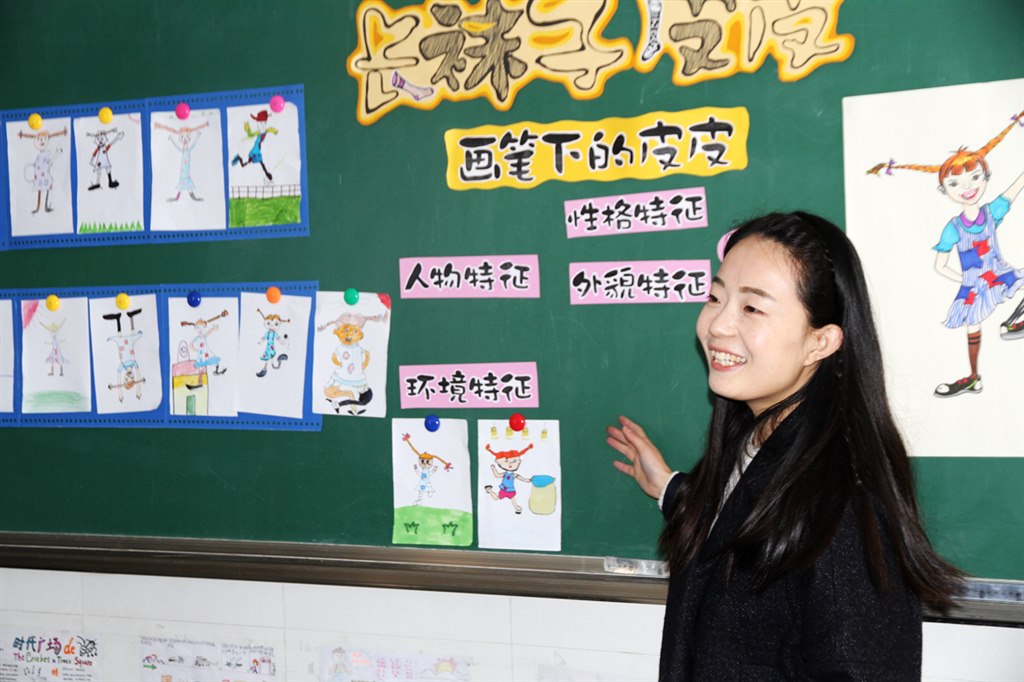 长袜子皮皮
画笔下的皮皮
性格特征
人物特征
外貌特征
环境特征
时代广场de
The Cricket in Times Square